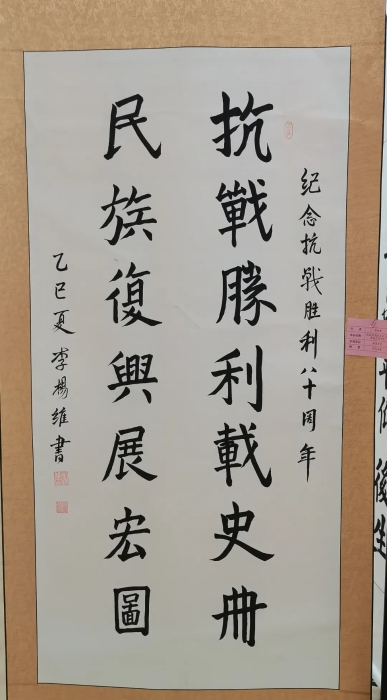 纪念抗戰胜利八十周年
抗戰勝利載史冊
民族復興展宏圖
乙巳夏 李楊維書